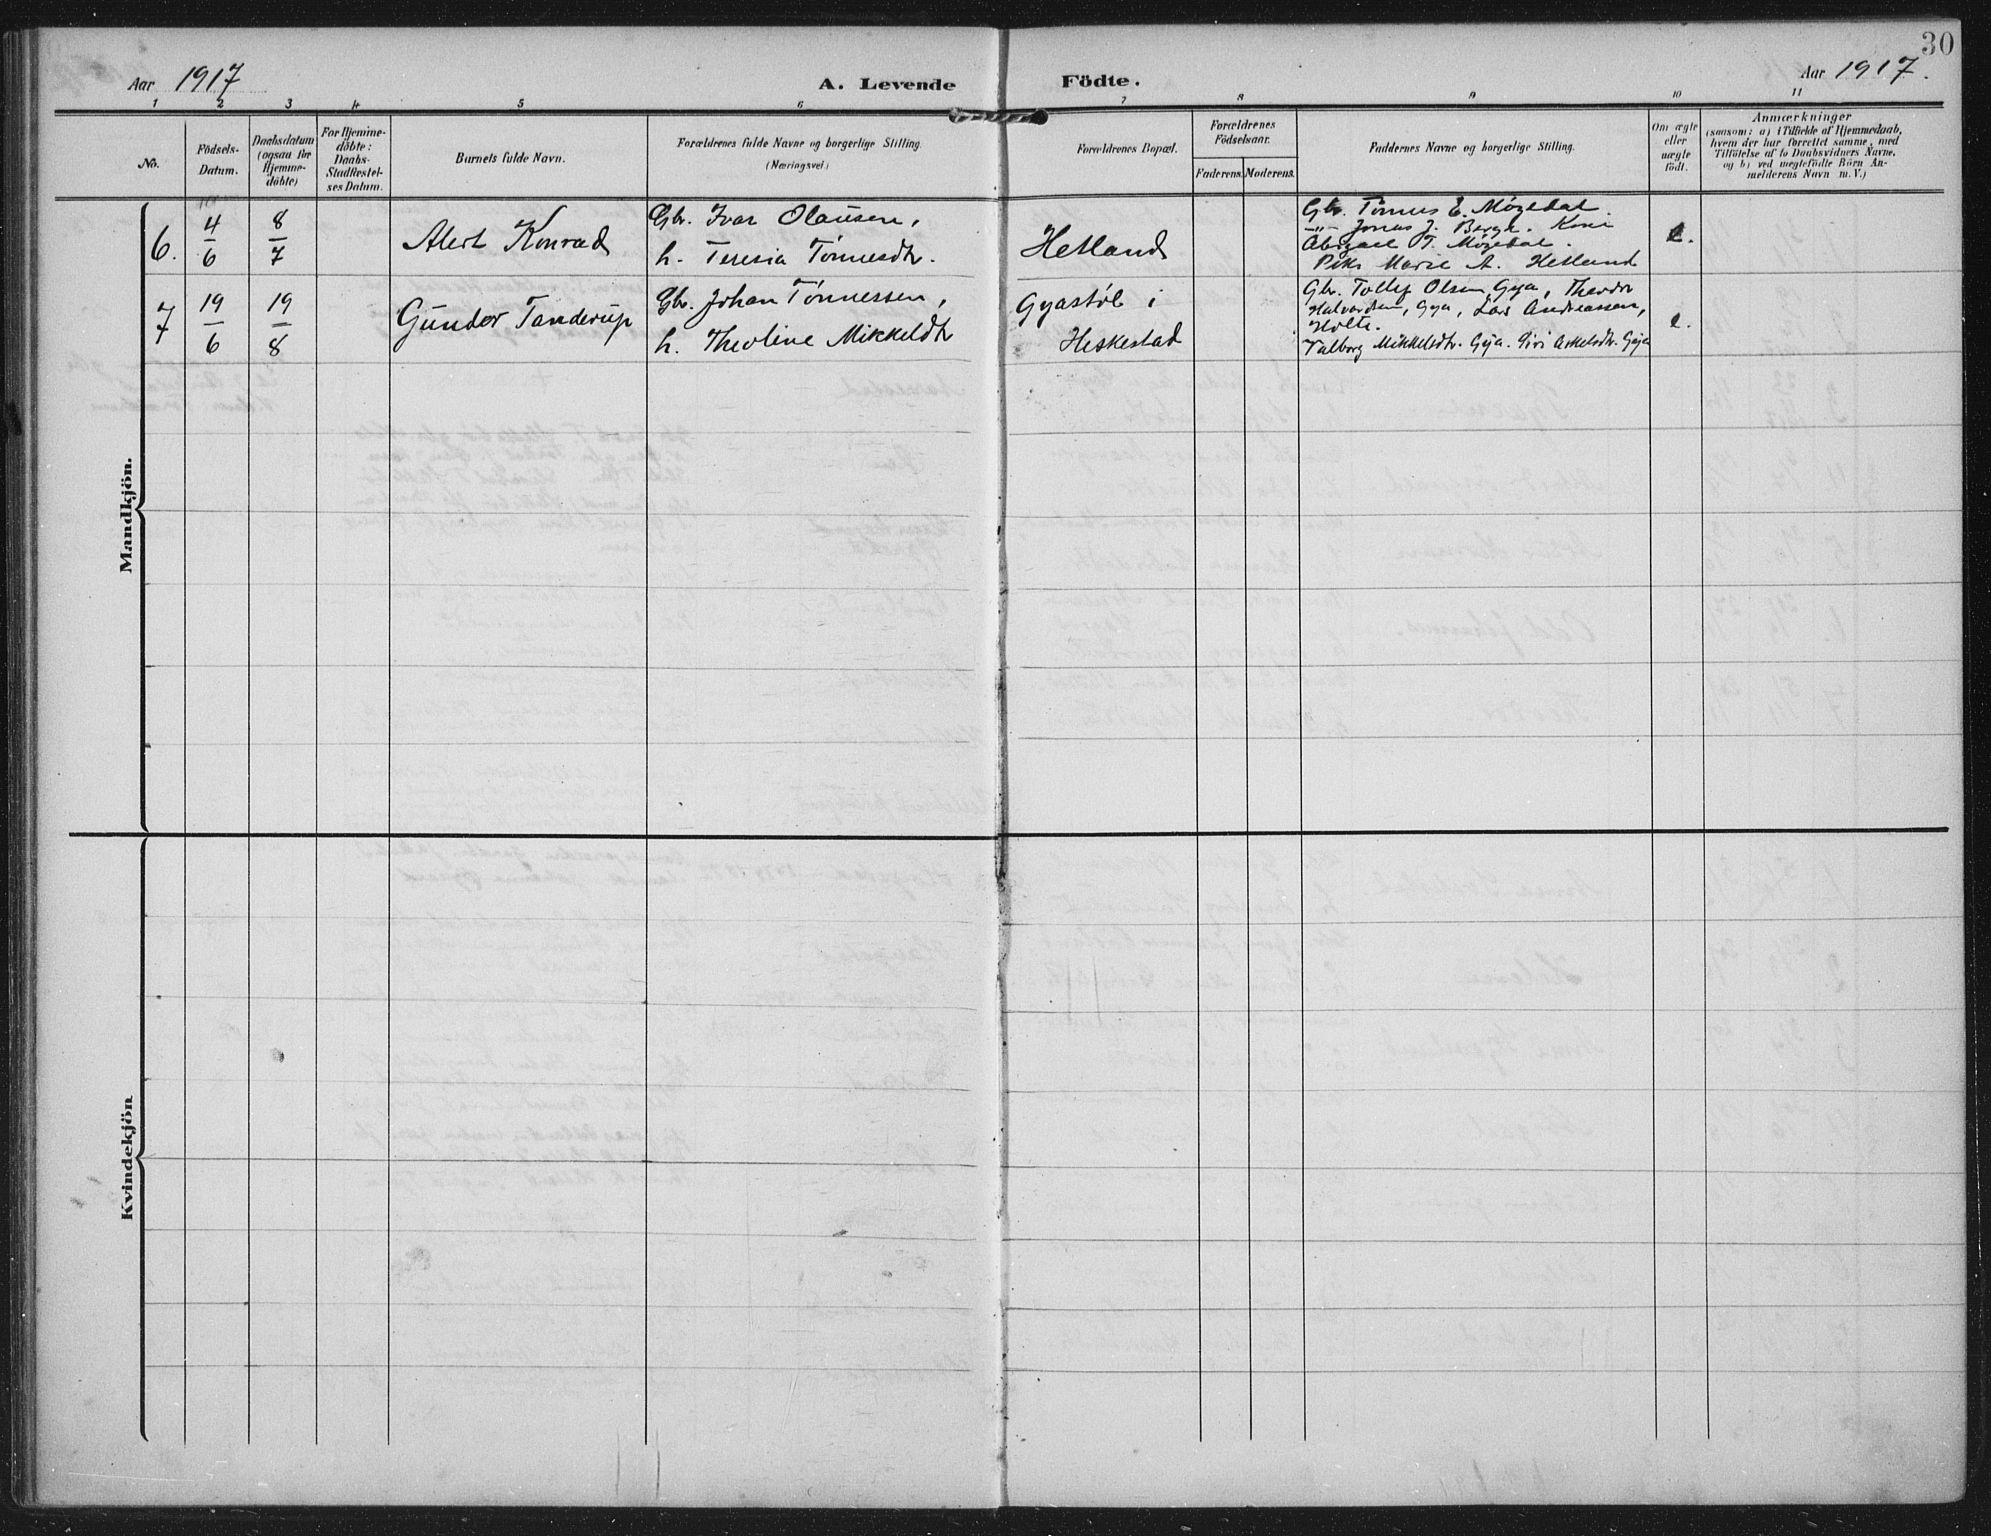 30
Aar 1917
A. Levende Födte.
Aar 1917.
1 2 3 4 5 6 7 8 9 10 11
No.
Födsels-
Datum.
Daabsdatum
(ogsaa for
Hjemme-
döbte)
For Hjemme-
döbte:
Daabs-
Stadfæstel-
ses Datum.
Barnets fulde Navn.
Forældrenes fulde Navne og borgerlige Stilling.
(Næringsvei.)
Forældrenes Bopæl.
Forældrenes
Födselsaar.
Faderens. Moderens.
Faddernes Navne og borgerlige Stilling.
Om ægte
eller
uægte
født.
Anmærkninger
(saasom: a) i Tilfælde af Hjemmedaab,
hvem der har forrettet samme, med
Tilföielse af to Daabsvidners Navne,
og b) ved uegtefödte Börn An-
melderens Navn m. V.)
Mandkjön.
6. 4/6 8/7 Alert Konrad
Gbr. Ivar Olausen,
h. Teresia Tønnesdtr.
Hetland
Gbr. Tønnes E. Møgedal.
-"- Jonas J. Bergh. Kone
Abigael T. Møgedal.
Pike Marie A. Hetland
e.
7 19/6 19/8 Gunder Tanderup
Gbr. Johan Tønnessen,
h. Theoline Mikkeldtr
Gyastøl i
Heskestad
Gbr. Tollef Olsen Gya, Theodor
Halvardsen, Gya, Lars Andreassen,
Holte.
Valborg Mikkelsdtr. Gya. Siri Askelsdtr. Gya
e.
Kvindekjön